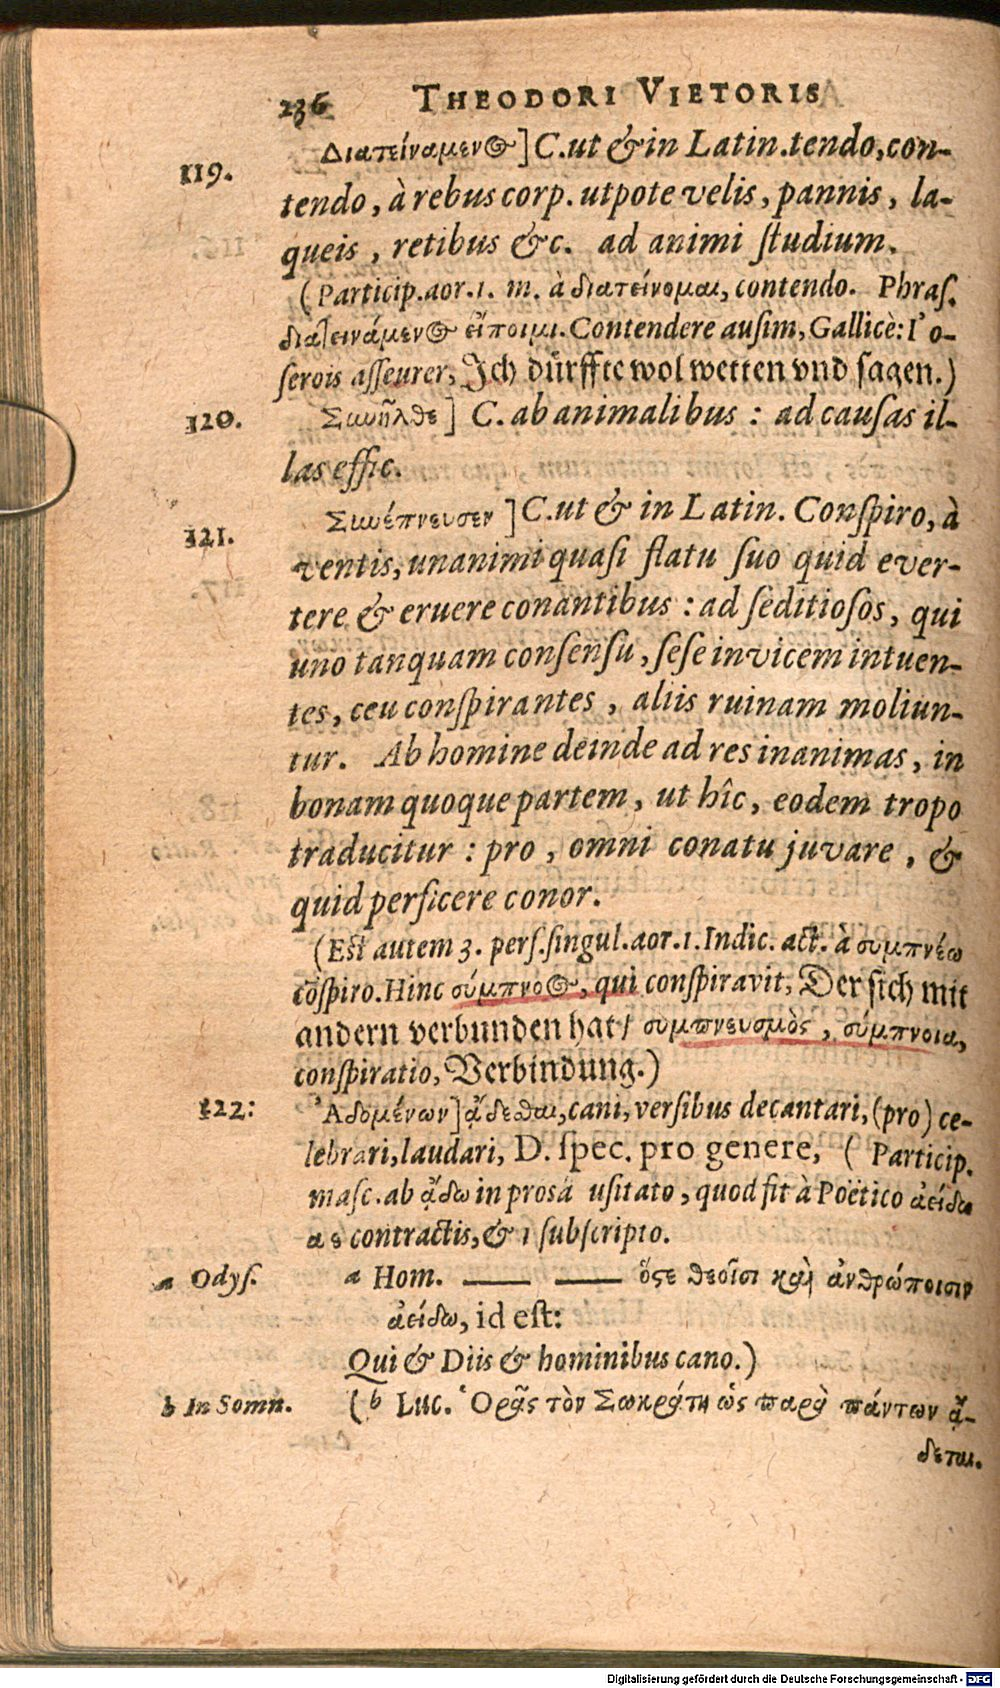 236 THEODORI VIETORIS
119. Διατείναμενος] C. ut & in Latin. tendo, con-
tendo, à rebus corp. utpote velis, pannis, la-
queis, retibus &c. ad animi ſtudium.
(Particip. aor. 1. m. à διατείνομαι, contendo. Phraſ.
διατεινάμενος εἴποιμι. Contendere auſim, Gallicè: I'o-
ſerois aſſeurer, Ich dürffte wol wetten vnd ſagen.)
120. Συνῆλθε] C. ab animalibus: ad cauſas il-
las effic.
121. Συνέπνευσεν] C. ut & in Latin. Conſpiro, à
ventis, unanimi quaſi flatu ſuo quid ever-
tere & eruere conantibus: ad ſeditioſos, qui
uno tanquam conſenſu, ſeſe invicem intuen-
tes, ceu conſpirantes, aliis ruinam moliun-
tur. Ab homine deinde ad res inanimas, in
bonam quoque partem, ut hîc, eodem tropo
traducitur: pro, omni conatu juvare, &
quid perficere conor.
(Eſt autem 3. perſ. ſingul. aor. 1. Indic. act. à συμπνέω
cõſpiro. Hinc σύμπνοος, qui conſpiravit, Der ſich mit
andern verbunden hat / συμπνευσμὸς, σύμπνοια,
conſpiratio, Verbindung.)
122: Ἀδομένων] ᾄδεσθαι, cani, verſibus decantari, (pro) ce-
lebrari, laudari, D. ſpec. pro genere, (Particip.
maſc. ab ᾄδω in proſa uſitato, quod fit à Poëtico ἀείδω
αε contractis, & ι ſubſcripto.
a Odyſ. a Hom. —— —— ὅςε θεοῖσι καὶ ἀνθρώποισιν
ἀείδω, id eſt:
Qui & Diis & hominibus cano.)
b In Somn. (b Luc. Ὁρᾷς τὸν Σωκράτη ὡς παρὰ πάντων ᾄ-
δεται.
Digitalisierung gefördert durch die Deutsche Forschungsgemeinschaft - DFG